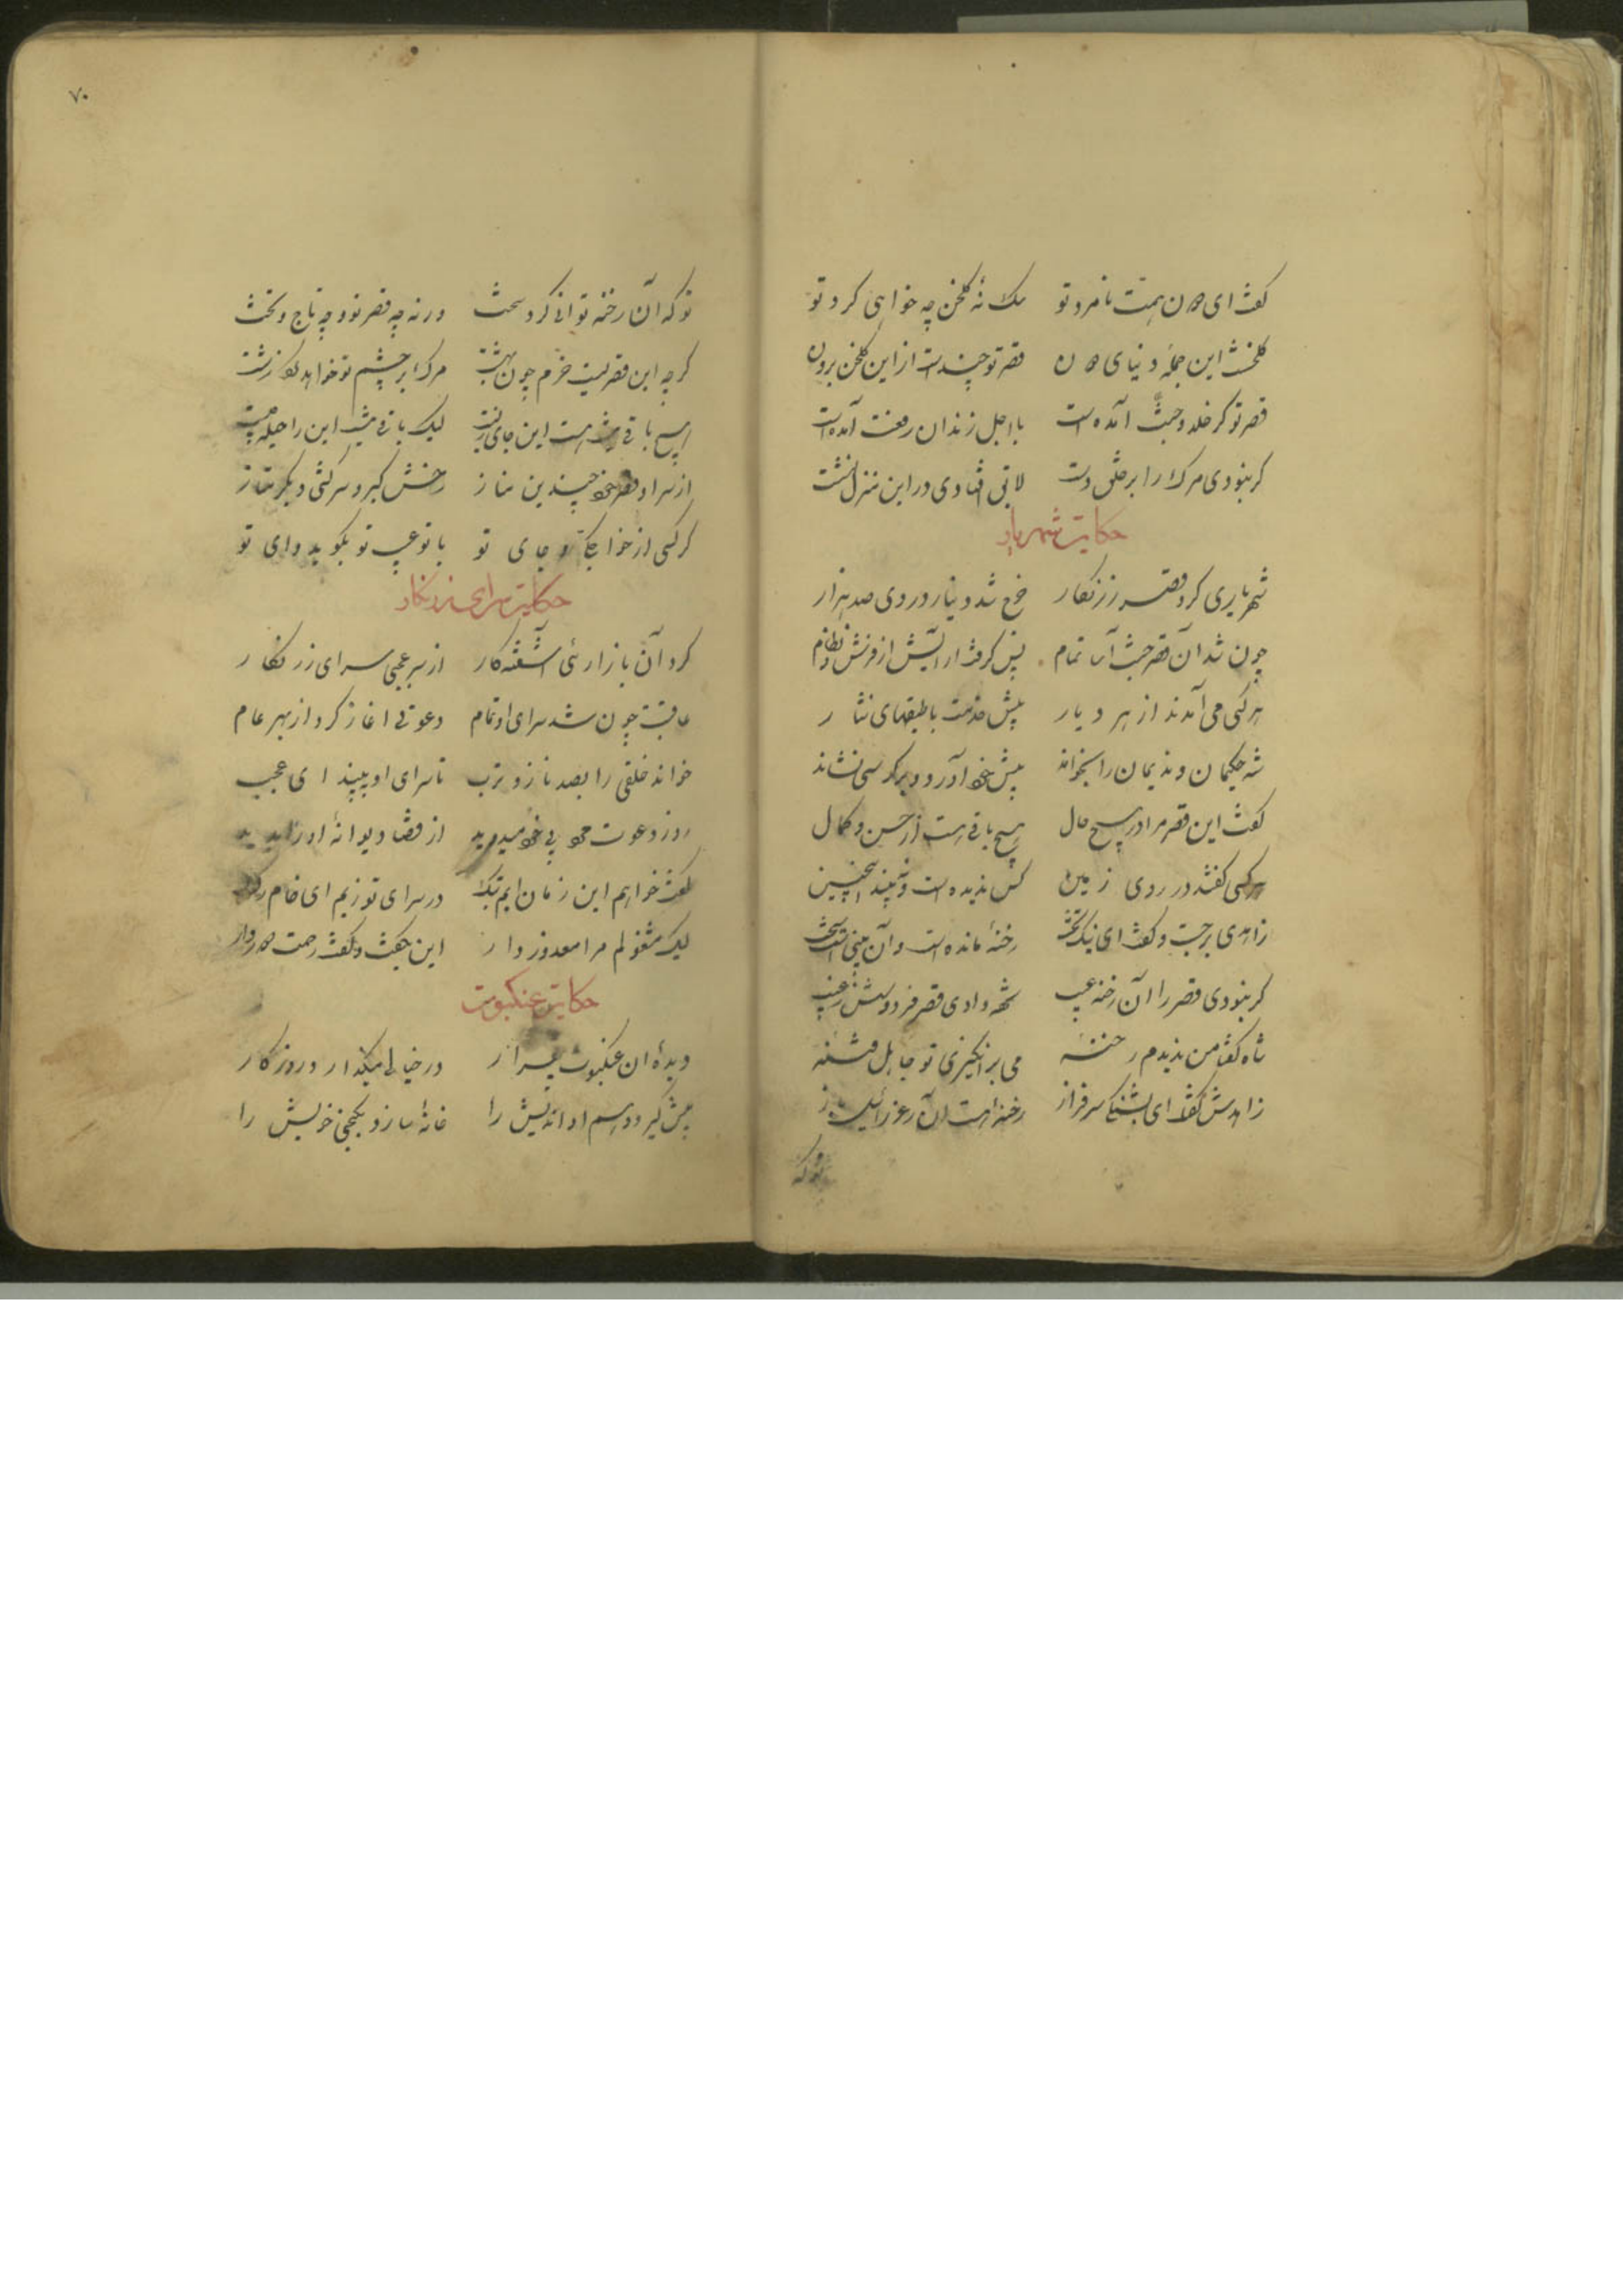 گفت ای دون همت نامرد تو سک نهٔ گلخن چه خواهی کرد تو
گلخنست این جملهٔ دنیای دون قصر تو چندست از این گلخن برون
قصر تو گر خلد و جنت آمده است با اجل زندان رفعت آمده است
گر نبودی مرگ را بر خلق دست لایق افتادی در این منزل نشست
حکایت شهریار
شهریاری کرد قصر زرنگار خرج شد دینار در وی صد هزار
چون شد آن قصر جنت آسا تمام پس گرفت آرایش از فرش و نظام
هر کسی می آمدند از هر دیار پیش خدمت با طبقهای نثار
شه حکیمان و ندیمان را بخواند پیش خود آورد و بر کرسی نشاند
گفت این قصر مرا در هیچ حال هیچ باقی هست از حسن و کمال
هر کسی گفتند در روی زمین کس ندیده است و نبیند اینچنین
زاهدی برجست و گفت ای نیک بخت رخنهٔ مانده است و آن عیبی است سخت
گر نبودی قصر را آن رخنه عیب تحفه دادی قصر فردوسش ز غیب
شاه گفتا من ندیدم رخنهٔ می برانگیزی تو جاهل فتنهٔ
زاهدش گفت ای بشاهی سرفراز رخنه است آن ز عزرائیل باز
بو که
بو که آن رخنه توانی کرد سخت ورنه چه قصر تو و چه تاج و تخت
گرچه این قصریست خرم چون بهشت مرگ بر چشم تو خواهد کرد زشت
هیچ باقی نیست هست این جای زیست لیک باقی نیست این را حیله چیست
از سرا و قصر خود چندین مناز رخش کبر و سرکشی دیگر متاز
گر کسی از خواجگی و جای تو با تو عیب تو نگوید وای تو
حکایت سرای زرنگار
کرد آن بازارئی آشفته کار از سر عجبی سرای زرنگار
عاقبت چون شد سرای او تمام دعوتی آغاز کرد از بهر عام
خواند خلقی را بصد ناز و طرب تا سرای او ببیند ای عجب
روز دعوت مرد بی خود میدوید از قضا دیوانهٔ او را بدید
گفت خواهم این زمان ایم بتک در سرای تو زیم ای خام رگ
لیک مشغولم مرا معذور دار این بگفت و گفت زحمت دور دار
حکایت عنکبوت
دیدهٔ آن عنکبوت بیقرار در خیالی میگذارد روزگار
پیش گیرد وهم دور اندیش را خانهٔ سازد بکنجی خویش را